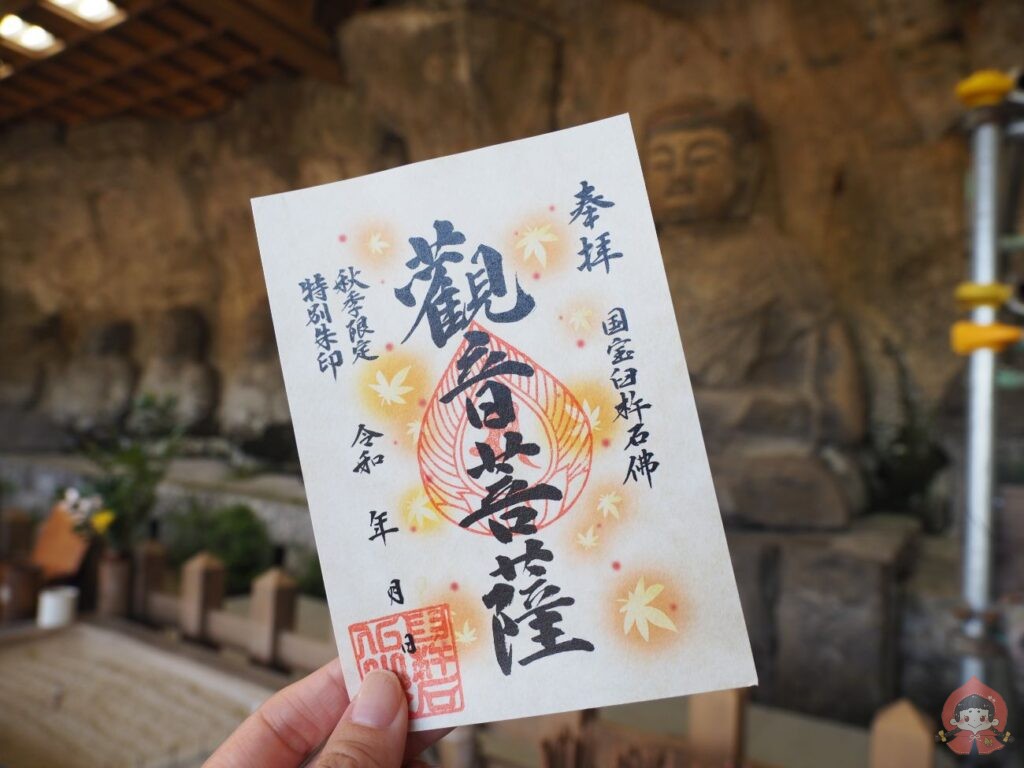 奉拝
国宝臼杵石佛
觀音菩薩
秋季限定
特別朱印
令和 年 月 日